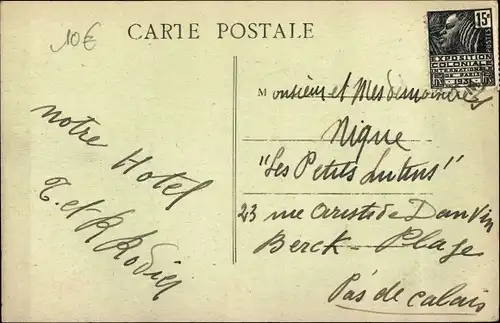 10€
CARTE POSTALE
15c
POSTES
EXPOSITION
COLONIALE
INTERNATIONALE
DE PARIS
1931
Monsieur et Mesdemoiselles
Nique
"Les Petits Lutins"
23 rue Aristide Danvin
Berck-Plage
Pas de calais
notre Hotel
et R Rodier